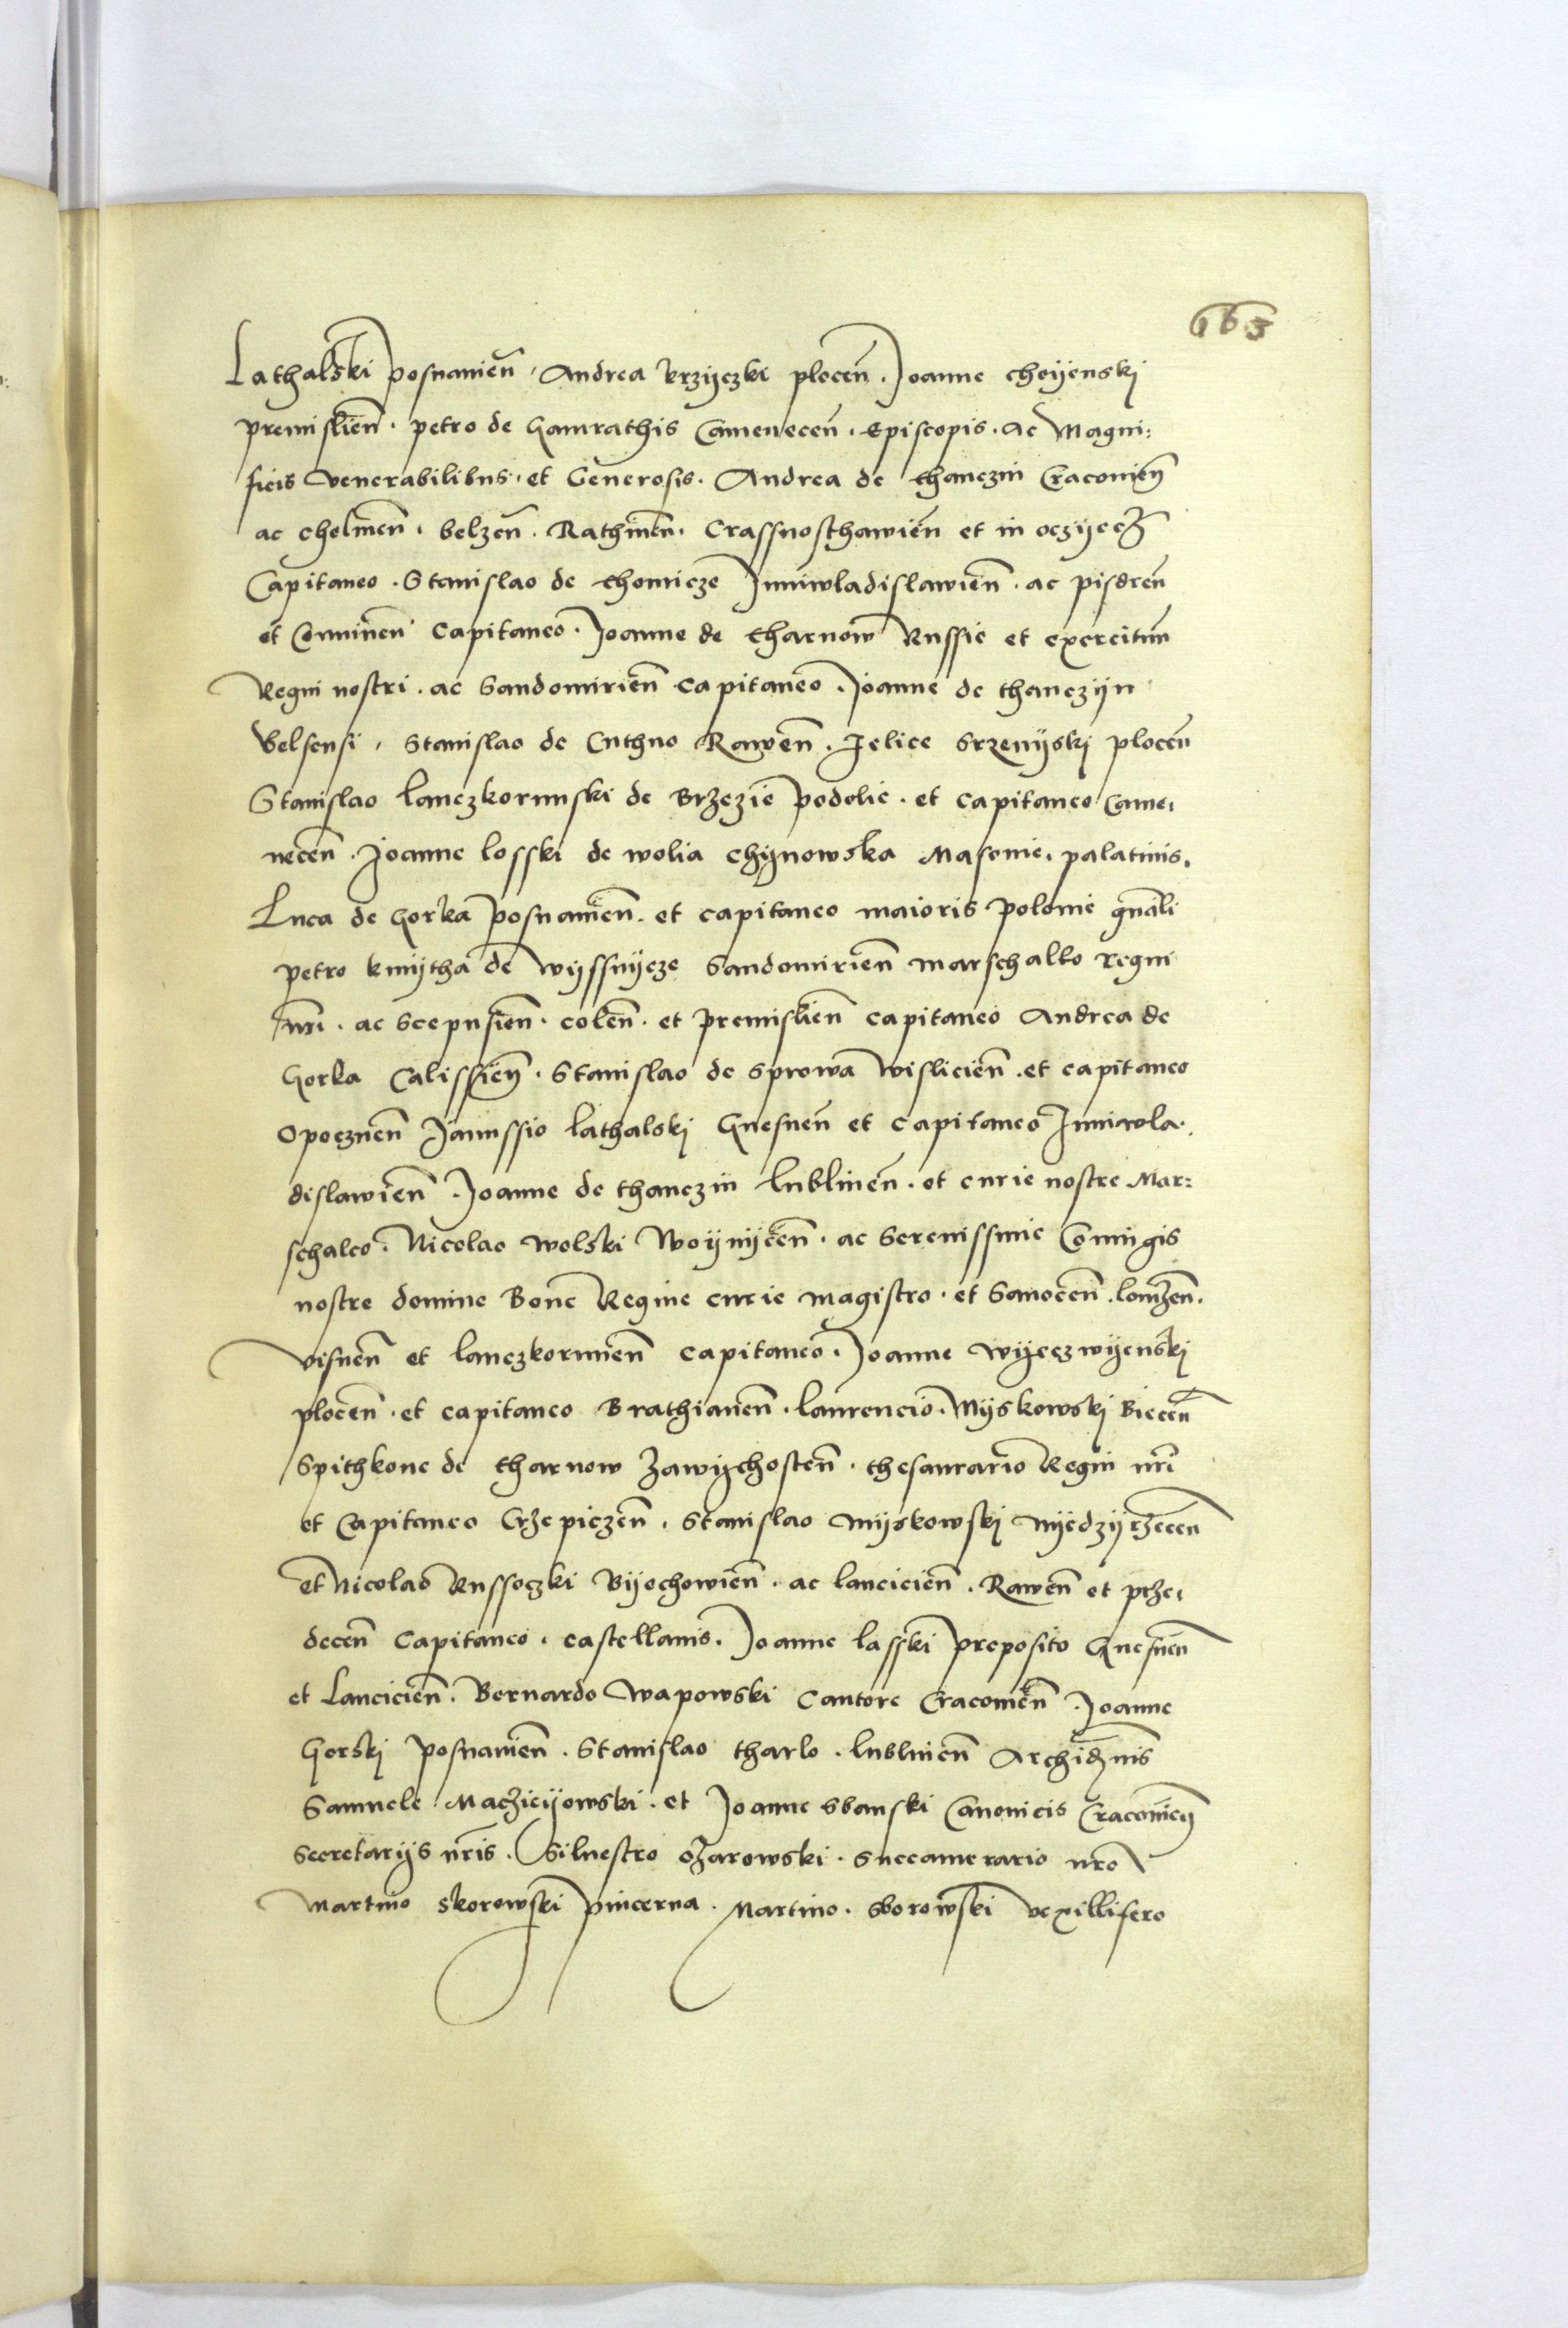 163
Lathalski posnanien̄ . Andrea krzyczki plocen̄ . Joanne choyenskj
premislien̄ . petro de Gamrathis Camenecen̄ . Episcopis . Ac Magni:
ficis Venerabilibus . et Generosis . Andrea de thanczin Cracovien̄
ac chelmen̄ . belzen̄ . Rathnen̄ . Crassnosthawien̄ et in oczyecz
Capitaneo . Stanislao de thomicze Juniwladislawien̄ . ac pisdren̄
et Conninen̄ Capitaneo . Joanne de tharnow Russie et exercituu̅
Regni nostri . ac Sandomirien̄ capitaneo . Joanne de thanczyn
belsensi , Stanislao de Cuthno Rawen̄ . Felice Srzenyskj plocen̄
Stanislao lanczkorunski de Brzezie podolie . et capitaneo Came,
necen̄ . Joanne losski de wolia chynowska Masonie . palatinis .
Luca de Gorka posnanien̄ . et capitaneo maioris polonie gn̄ali
petro kmytha de wyssnycze Sandomirien̄ marschalko regni
nr̄i . ac Scepusien̄ . colen̄ . et premislien̄ capitaneo Andrea de
Gorka Calissien̄ . Stanislao de Sprowa Wislicien̄ . et capitaneo
Opocznen̄ Janussio lathalskj Gnesnen̄ et capitaneo Juniwla.
dislawien̄ . Joanne de thanczin lublinen̄ . et curie nostre Mar:
schalco . Nicolao wolski Woynycen̄ . ac Serenissime Coniugis
nostre domine Bone Regine curie magistro . et Sanocen̄ . lomzen̄ .
visnen̄ et lanczkorunen̄ capitaneo . Joanne wyeczwyenskj
plocen̄ . et capitaneo Brathianen̄ . laurencio . Myskowskj Biecen̄
Spithkone de tharnow zawychosten̄ . thesaurario Regni nr̄i
et Capitaneo Crzepiczen̄ . Stanislao myskowskj myedzyrzecen̄
et Nicolao Russoczki Byechowien̄ . ac lancicien̄ . Rawen̄ et prze,
decen̄ Capitaneo . castellanis . Joanne lasski preposito Gnesnen̄
et Lancicien̄ . Bernardo wapowski Cantore Cracovien̄ . Joanne
Gorskj posnanien̄ . Stanislao tharlo . lublinen̄ Archidn̄is
Samuele Maczieyowski . et Joanne sbanski Canonicis Cracovien̄
Secretarijs nr̄is . Siluestro ozarowski . Succamerario nr̄o
Martino Skorowski pincerna . Martino . sborowski vexillifero